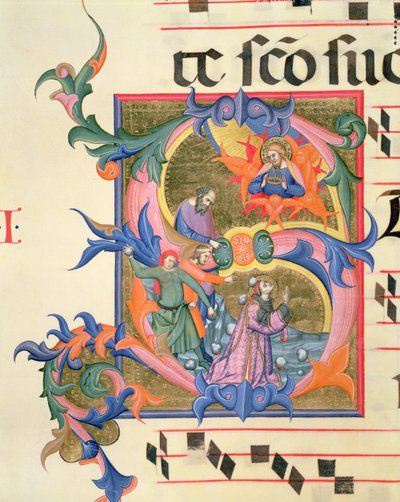 te sc̄o su
I.